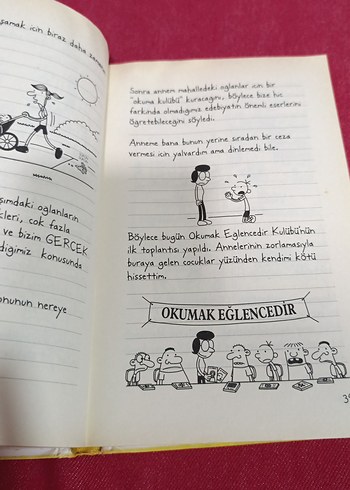 şamak için biraz daha zamanım
şımdaki oğlanların
kleri, çok fazla
ve bizim GERÇEK
diğimiz konusunda
onunun nereye
Sonra annem mahalledeki oğlanlar için bir
"okuma kulübü" kuracağını, böylece bize hiç
farkında olmadığımız edebiyatın önemli eserlerini
öğretebileceğini söyledi.
Anneme bana bunun yerine sıradan bir ceza
vermesi için yalvardım ama dinlemedi bile.
Böylece bugün Okumak Eğlencedir Kulübü'nün
ilk toplantısı yapıldı. Annelerinin zorlamasıyla
buraya gelen çocuklar yüzünden kendimi kötü
hissettim.
OKUMAK EĞLENCEDİR